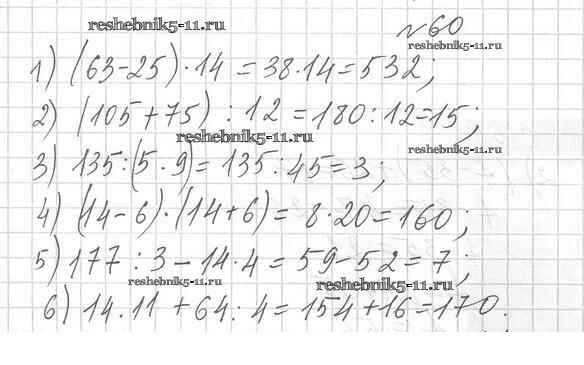 reshebnik5-11.ru
№60
reshebnik5-11.ru
1) (63-25)·14=38·14=532;
2) (105+75):12=180:12=15;
reshebnik5-11.ru
reshebnik5-11.ru
3) 135:(5·9)=135:45=3;
4) (14-6)·(14+6)=8·20=160;
5) 177:3-14·4=59-52=7;
reshebnik5-11.ru
reshebnik5-11.ru
6) 14.11+64:4=154+16=170.